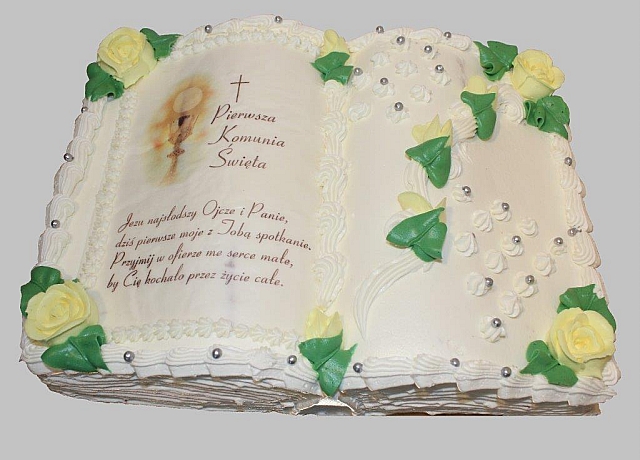 Pierwsza
Komunia
Święta
Jezu najsłodszy Ojcze i Panie,
dziś pierwsze moje z Tobą spotkanie.
Przyjmij w ofierze me serce małe,
by Cię kochało przez życie całe.